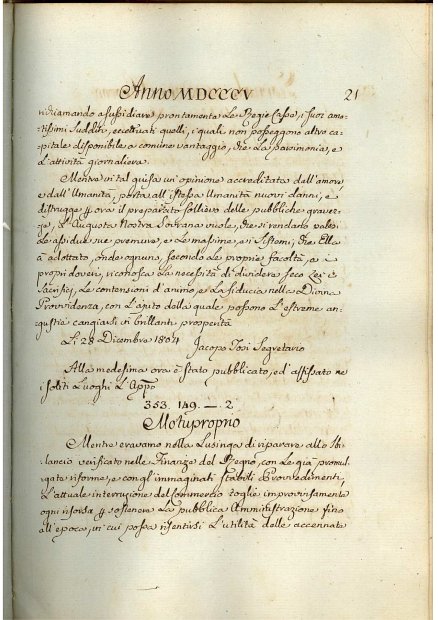 Anno MDCCCV 21
richiamando a sussidiare prontamente le Regie Casse, i suoi ama-
tissimi sudditi, eccettuati quelli, i quali non posseggono altro ca-
pitale disponibile a comune vantaggio, che la parsimonia, e
l'attività giornaliera.
Mentre in tal guisa un'opinione accreditata dall'amore,
e dall'Umanità, porta all'istessa Umanità nuovi danni, e
distrugge p ora il preparato sollievo delle pubbliche grave-
ze, l'Augusta Nostra Sovrana vuole, che si rendano palesi
le assidue sue premure, e le massime, e i sistemi, che Ella
à adottato, onde ognuno, secondo le proprie facoltà, e i
propri doveri, riconosca la necessità di dividere seco Lei i
sacrifici, le contensioni d'animo, e la fiducia nella Divina
Provvidenza, con l'ajuto della quale possono l'estreme an-
gustie cangiarsi in brillanti prosperità
Lì 28 Dicembre 1804
Jacopo Tosi Segretario
Alla medesima ora è stato pubblicato, ed affissato ne
i soliti Luoghi l'App.
353. 149. — 2.
Motuproprio
Mentre eravamo nella Lusinga di riparare allo Sbi-
lancio verificato nelle Finanze del Regno, con le già promul-
gate riforme, e con gl'immaginati stabili Provvedimenti,
L'attuale interruzione del Commercio toglie improvvisamente
ogni risorsa p sostenere la pubblica Amministrazione fino
all'epoca, in cui possa risentirsi l'utilità delle accennate